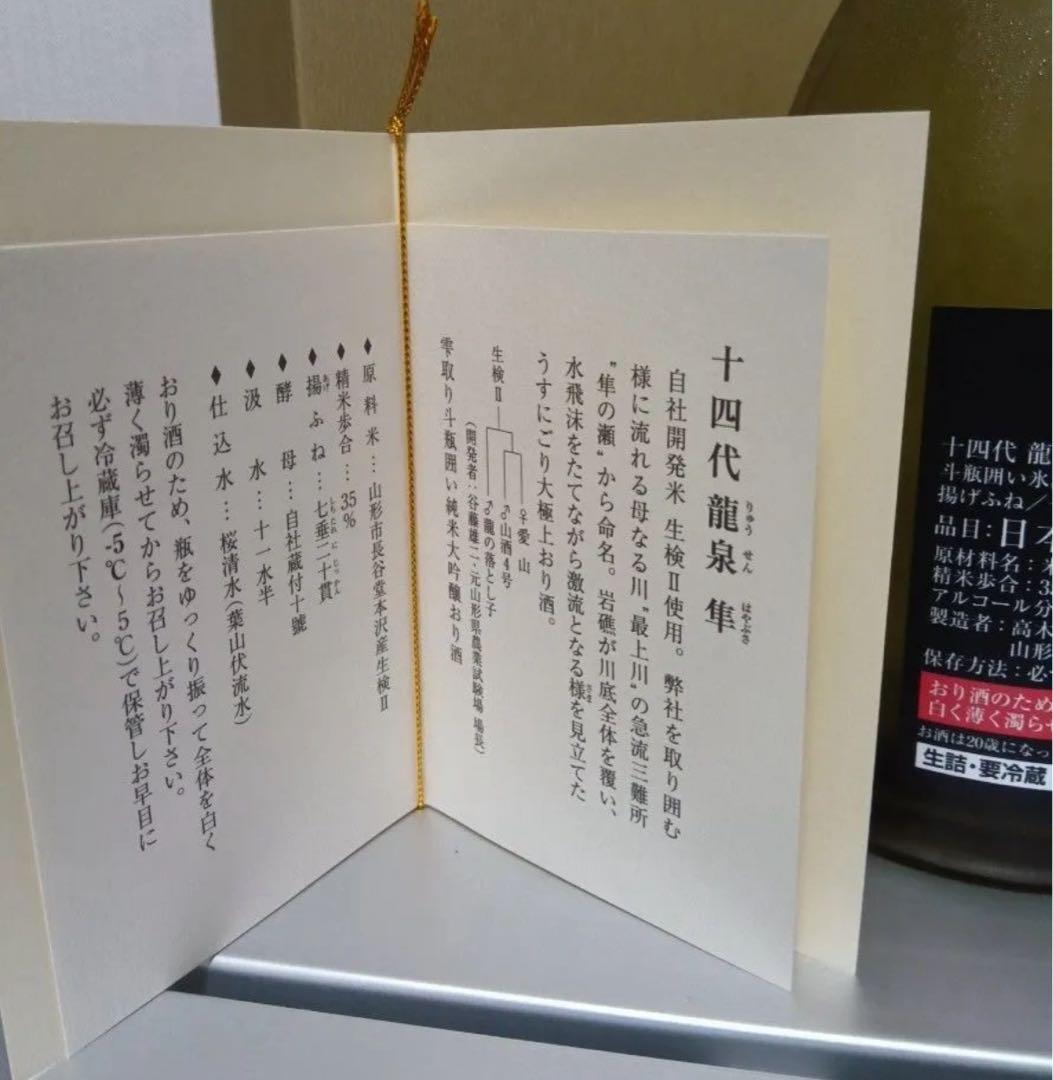 十四代 龍泉 隼
りゅう せん はやぶさ
自社開発米 生検Ⅱ使用。弊社を取り囲む
様に流れる母なる川”最上川”の急流三難所
”隼の瀬”から命名。岩礁が川底全体を覆い、
水飛沫をたてながら激流となる様を見立てた
さま
うすにごり大極上おり酒。
生検Ⅱ
♀愛山
♂山酒4号
♂龍の落とし子
(開発者:谷藤雄二・元山形県農業試験場 場長)
雫取り斗瓶囲い純米大吟醸おり酒
◆原料米…山形市長谷堂本沢産生検Ⅱ
◆精米歩合…35%
◆揚ふね…七垂二十貫
あげ
しちたれ にじっかん
◆酵母…自社蔵付十號
◆汲水…十一水半
◆仕込水…桜清水(葉山伏流水)
おり酒のため、瓶をゆっくり振って全体を白く
薄く濁らせてからお召し上がり下さい。
必ず冷蔵庫(-5℃～5℃)で保管しお早目に
お召し上がり下さい。
十四代 龍
斗瓶囲い氷
揚げふね/
品目:日本
原材料名:米
精米歩合:3
アルコール分
製造者:高木
山形
保存方法:必
おり酒のため
白く薄く濁らせ
お酒は20歳になっ
生詰・要冷蔵